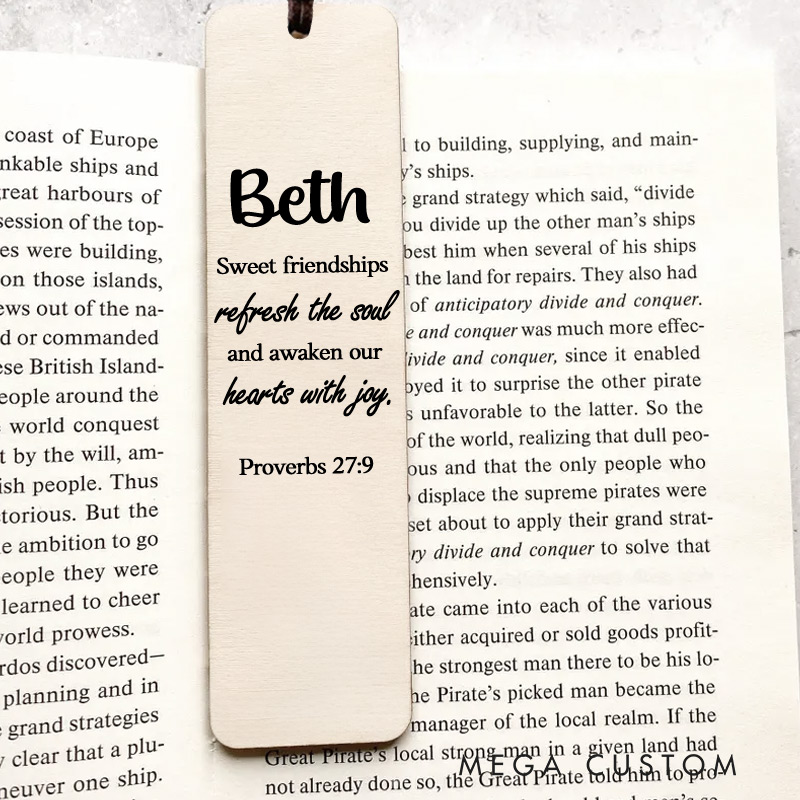 Beth
Sweet friendships
refresh the soul
and awaken our
hearts with joy.
Proverbs 27:9
coast of Europe
nkable ships and
great harbours of
session of the top-
es were building,
on those islands,
ews out of the na-
d or commanded
ese British Island-
eople around the
world conquest
t by the will, am-
ish people. Thus
torious. But the
e ambition to go
eople they were
learned to cheer
world prowess.
rdos discovered—
planning and in
grand strategies
y clear that a plu-
neuver one ship.
l to building, supplying, and main-
y's ships.
grand strategy which said, “divide
ou divide up the other man's ships
best him when several of his ships
the land for repairs. They also had
of anticipatory divide and conquer.
e and conquer was much more effec-
ivide and conquer, since it enabled
oyed it to surprise the other pirate
s unfavorable to the latter. So the
of the world, realizing that dull peo-
ous and that the only people who
displace the supreme pirates were
set about to apply their grand strat-
ry divide and conquer to solve that
hensively.
ate came into each of the various
ither acquired or sold goods profit-
he strongest man there to be his lo-
he Pirate's picked man became the
manager of the local realm. If the
Great Pirate's local strong-man in a given land had
not already done so, the Great Pirate told him to pro-
MEGA CUSTOM